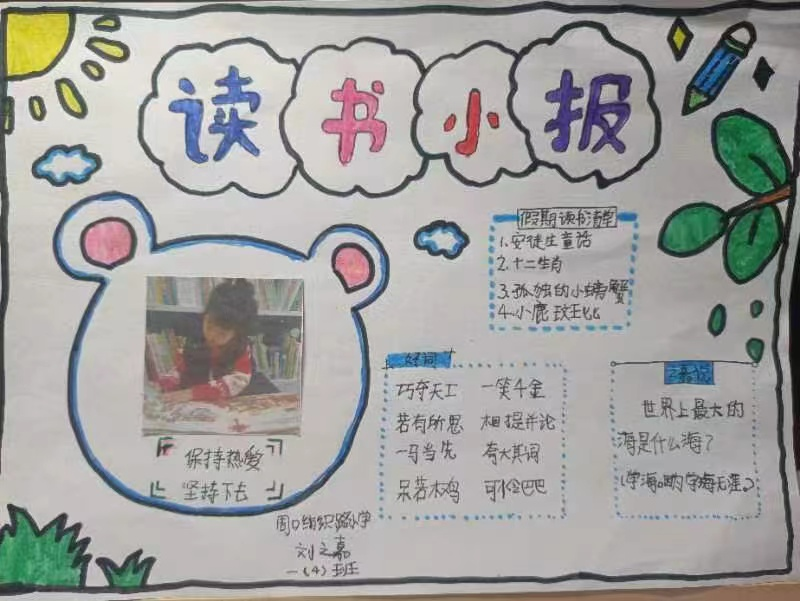 读书小报
假期读书清单
1.安徒生童话
2.十二生肖
3.孤独的小螃蟹
4.小鹿斑比
好词
巧夺天工 一笑千金
若有所思 相提并论
一马当先 夸大其词
呆若木鸡 可怜巴巴
世界上最大的
海是什么海?
(学海呦 学海无涯。)
保持热爱
坚持下去
周口纺织路小学
刘之嘉
一(4)班